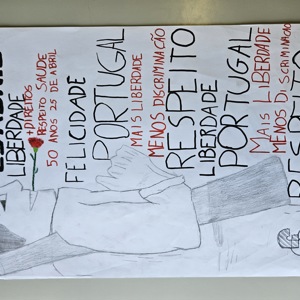 LIBERDADE
+ DIREITOS
RESPEITO SAÚDE
50 ANOS 25 DE ABRIL
FELICIDADE
PORTUGAL
MAIS LIBERDADE
MENOS DISCRIMINAÇÃO
RESPEITO
LIBERDADE
PORTUGAL
MAIS LIBERDADE
MENOS DISCRIMINAÇÃO